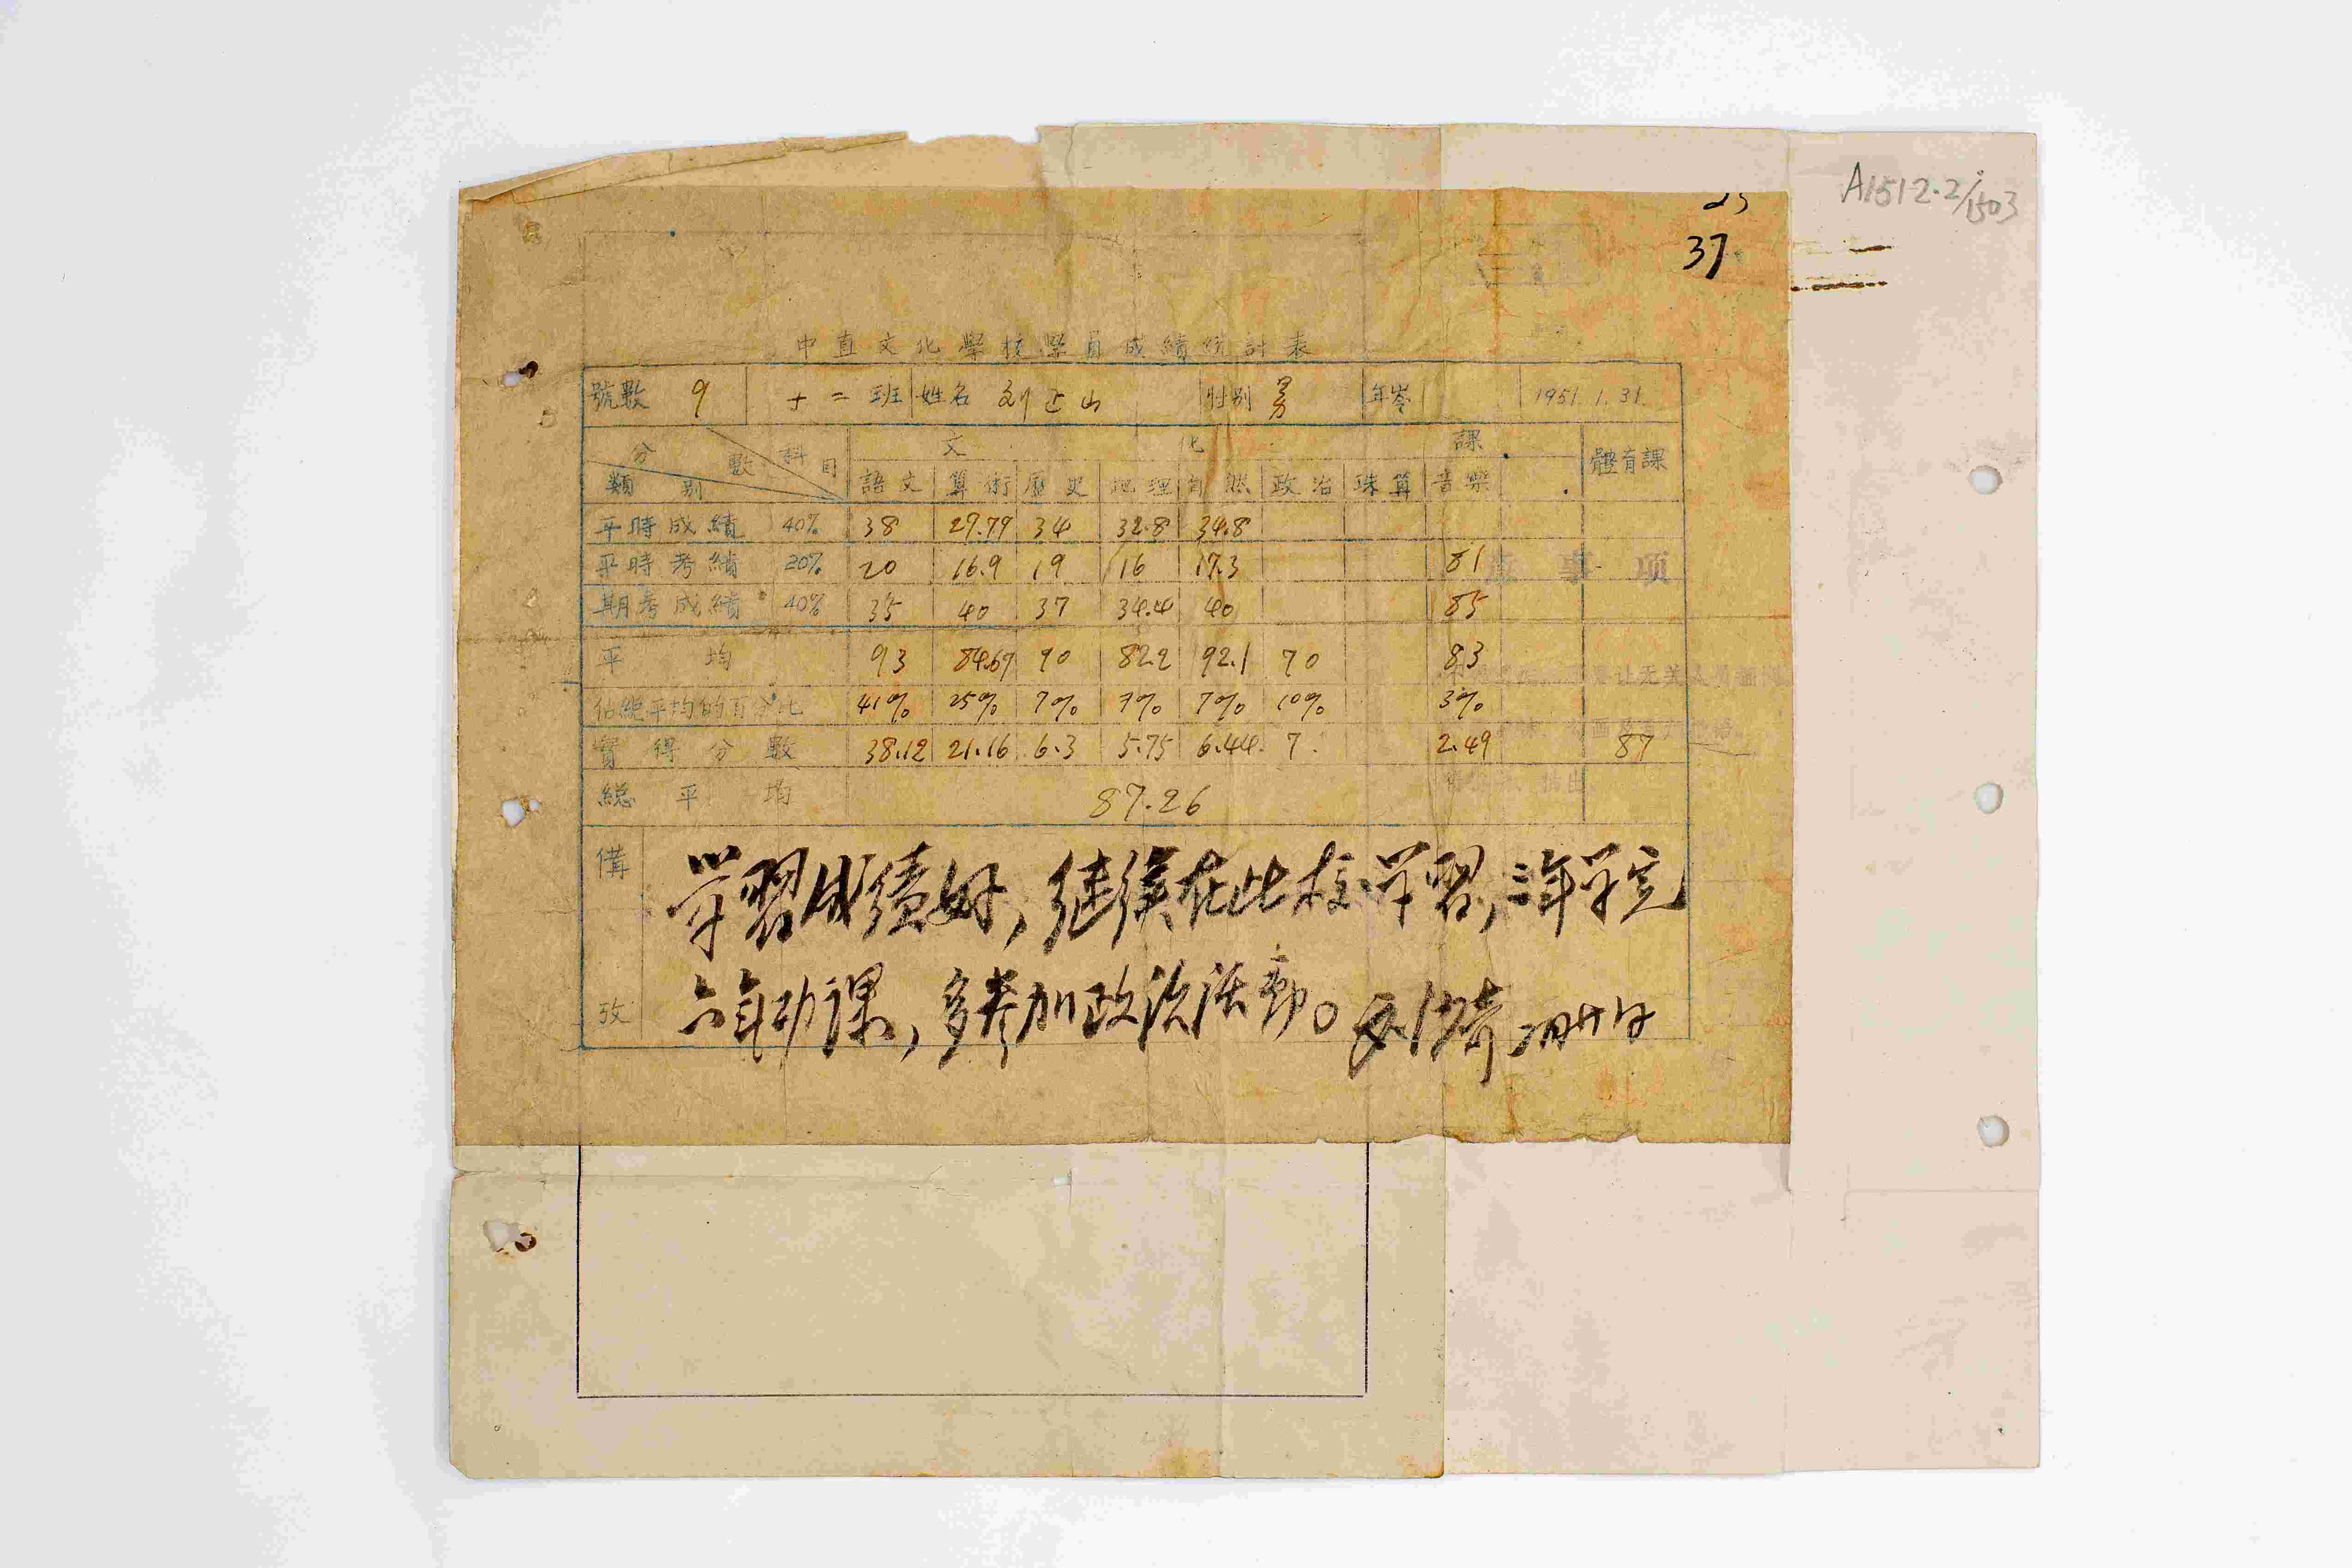 A1512·2/1503
37
中直文化學校學員成績統計表
號數 9 十二班 姓名 刘正山 性别 男 年岺 1951.1.31.
分數 科目 類别 文化課 體育課
語文 算術 歷史 地理 自然 政治 珠算 音樂
平時成績 40% 38 27.79 34 32.8 34.8
平時考績 20% 20 16.9 19 16 17.3 81
期考成績 40% 35 40 37 34.4 40 85
平均 93 84.69 90 82.2 92.1 70 83
佔總平均的百分比 41% 25% 7% 7% 7% 10% 3%
實得分數 38.12 21.16 6.3 5.75 6.44 7. 2.49 87
総平均 87.26
備攷
学習成績好，继續在此校学習，三年学完
六年功課，多参加政治活動。